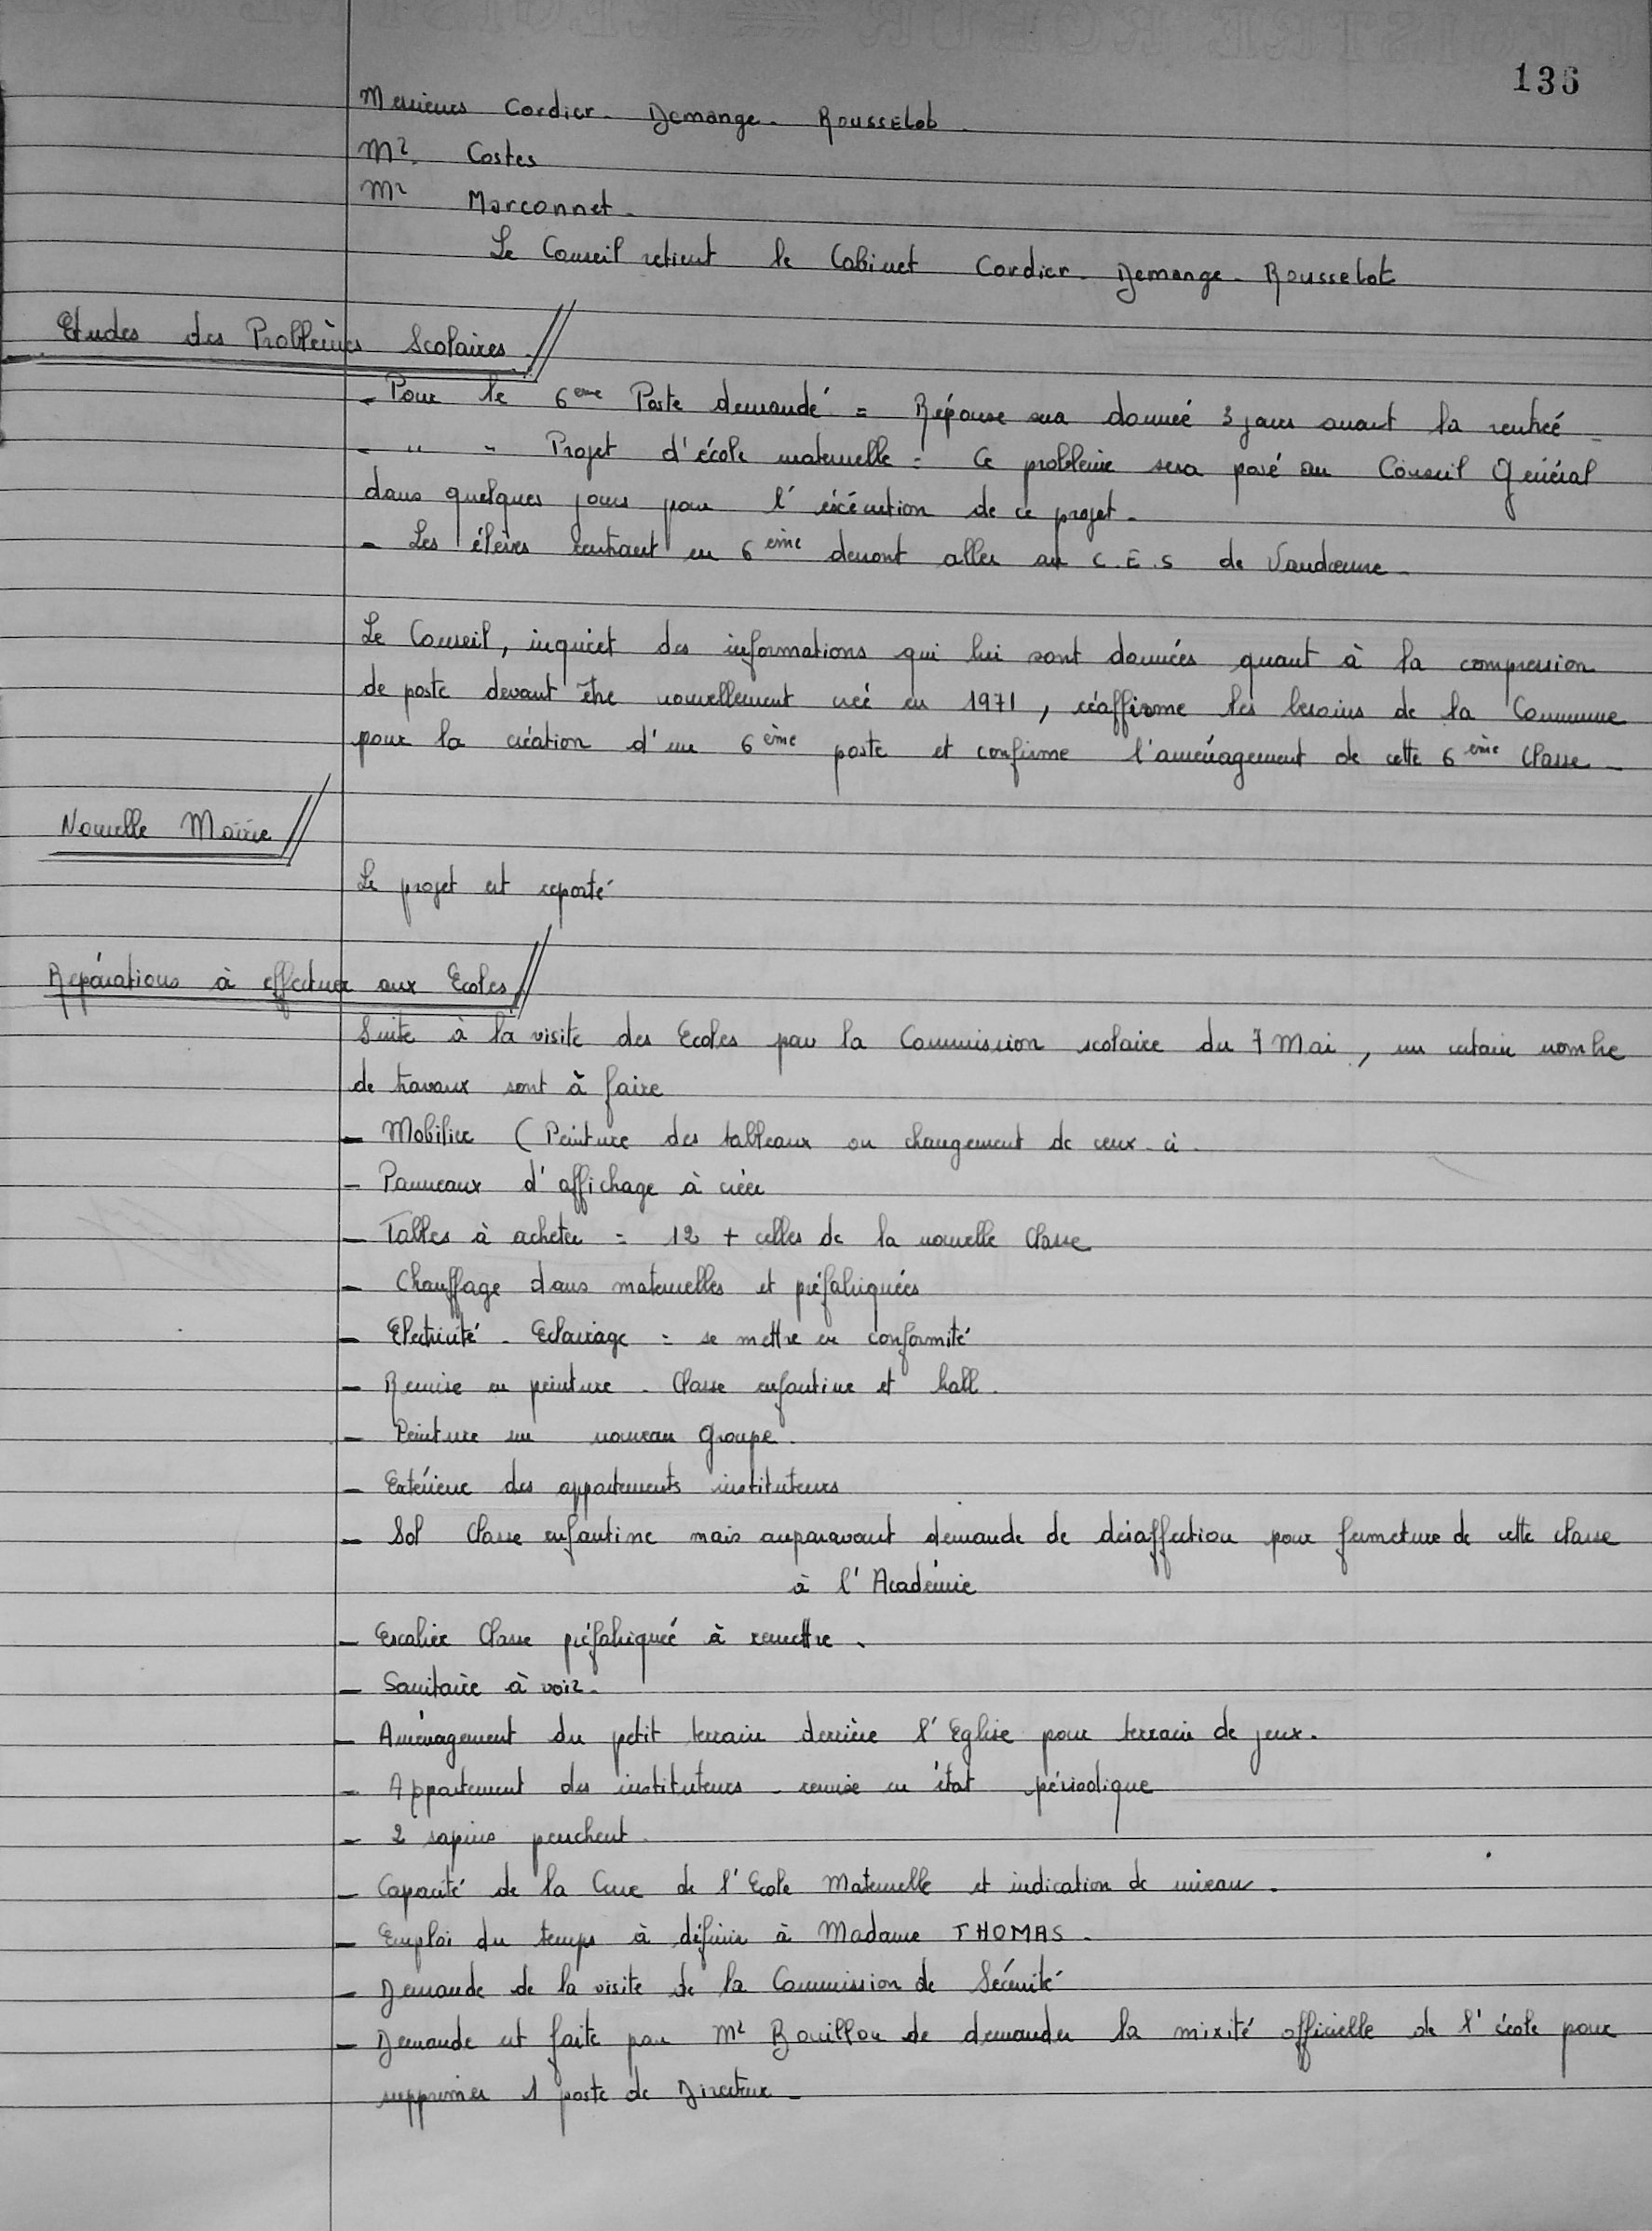 136
Messieurs Cordier - Demange - Rousselot -
Mr. Costes
Mr Marconnet -
Le Conseil retient le Cabinet Cordier - Demange - Rousselot
Etudes des Problèmes Scolaires
- Pour le 6eme Poste demandé = Réponse sera donnée 3 jours avant la rentrée -
- " " Projet d'école maternelle = Ce problème sera posé au Conseil Général
dans quelques jours pour l'éxécution de ce projet -
- Les élèves rentrant en 6ème devront aller au C.E.S de Vandœuvre -
Le Conseil, inquiet des informations qui lui sont données quant à la compression
de poste devant être nouvellement créé en 1971, réaffirme les besoins de la Commune
pour la création d'un 6ème poste et confirme l'aménagement de cette 6ème Classe -
Nouvelle Mairie
Le projet est reporté
Réparations à effectuer aux Ecoles
Suite à la visite des Ecoles par la Commission scolaire du 7 Mai, un certain nombre
de travaux sont à faire
- Mobilier (Peinture des tableaux ou changement de ceux-ci -
- Panneaux d'affichage à créer
- Tables à acheter = 12 + celles de la nouvelle Classe
- Chauffage dans maternelles et préfabriquées
- Electricité - Eclairage = se mettre en conformité
- Remise en peinture - Classe enfantine et hall.
- Peinture sur nouveau Groupe.
- Extérieur des appartements instituteurs
- Sol Classe enfantine mais auparavant demande de désaffection pour fermeture de cette classe
à l'Académie
- Escalier Classe préfabriquée à remettre.
- Sanitaire à voir.
- Aménagement du petit terrain derrière l'Eglise pour terrain de jeux.
- Appartement des instituteurs - remise en état périodique
- 2 sapins penchent.
- Capacité de la Cuve de l'Ecole Maternelle et indication de niveau.
- Emploi du temps à définir à Madame THOMAS -
- Demande de la visite de la Commission de Sécurité
- Demande est faite par Mr Bouillon de demander la mixité officielle de l'école pour
supprimer 1 poste de Directeur -